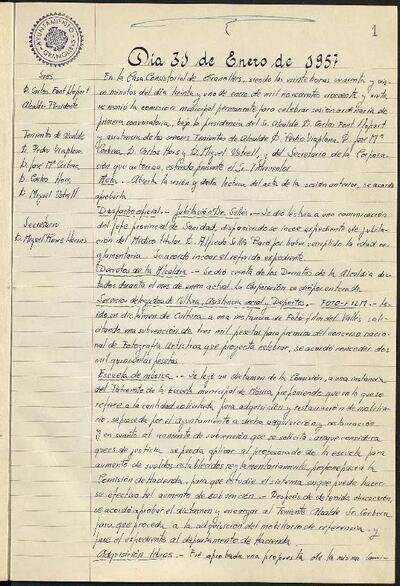 1
AYUNTAMIENTO
GRANOLLERS
Dia 31 de Enero de 1957
Sres.
D. Carlos Font Llopart
Alcalde-Presidente
Teniente de Alcalde
D. Pedro Viaplana
D. José Mª Corbera
D. Carlos Hors
D. Miguel
Secretario
D. Miguel
En la Casa Consistorial de Granollers, siendo las veinte horas cuarenta y cin-
co minutos del dia treinta y uno de enero de mil novecientos cincuenta y siete,
se reunió la comisión municipal permanente para celebrar sesión ordinaria de
primera convocatoria, bajo la presidencia del Sr. Alcalde D. Carlos Font Llopart
y asistencia de los señores Tenientes de Alcalde D. Pedro Viaplana, D. José Mª
Corbera, D. Carlos Hors y D. Miguel, y del Secretario de la Corpora-
ción que autoriza, estando presente el Sr. Interventor
Acta.- Abierta la sesión y dada lectura del acta de la sesión anterior, se acordó
aprobarla
Despacho oficial.- Jubilación Dr. Sellés.- Se dió lectura a una comunicación
del Jefe provincial de Sanidad, disponiendo se incoe expediente de jubila-
ción del Médico titular D. Alfredo Sellés por haber cumplido la edad re-
glamentaria. Se acordó incoar el referido expediente.
Decretos de la Alcaldia.- Se dió cuenta de los Decretos de la Alcaldia dic-
tados durante el mes de enero actual. La Corporación se dió por enterada
Servicio delegado de Cultura, Asistencia social y Deportes.- FOTO-FILM.- Le-
ido un dictamen de Cultura a una instancia de Foto-film del Vallés soli-
citando una subvención de tres mil pesetas para premios del concurso nacio-
nal de Fotografia Artistica que proyecta celebrar, se acordó conceder dos
mil quinientas pesetas.
Escuela de música.- Se leyó un dictamen de la Comisión, a una instancia
del Patronato de la Escuela municipal de Música, proponiendo que en lo que se
refiere a la cantidad solicitada para adquisición y restauración de mobilia-
rio, se proceda por el ayuntamiento a dicha adquisición y restauración
y en cuanto al aumento de subvención que se solicita, aunque considera
que es de justicia se pueda aplicar al profesorado de la escuela para
aumento de sueldos establecidos reglamentariamente, propone pase a la
Comisión de Hacienda, para que estudie el sistema en que pueda hacer-
se efectivo tal aumento de subvención.- Después de detenida discusión,
se acordó aprobar el dictamen y encargar al Teniente Alcalde Sr. Corbera
para que proceda a la adquisición del mobiliario de referencia y
pase el expediente al departamento de Hacienda.
Adquisición libros.- Fué aprobada una propuesta de la misma Comi-